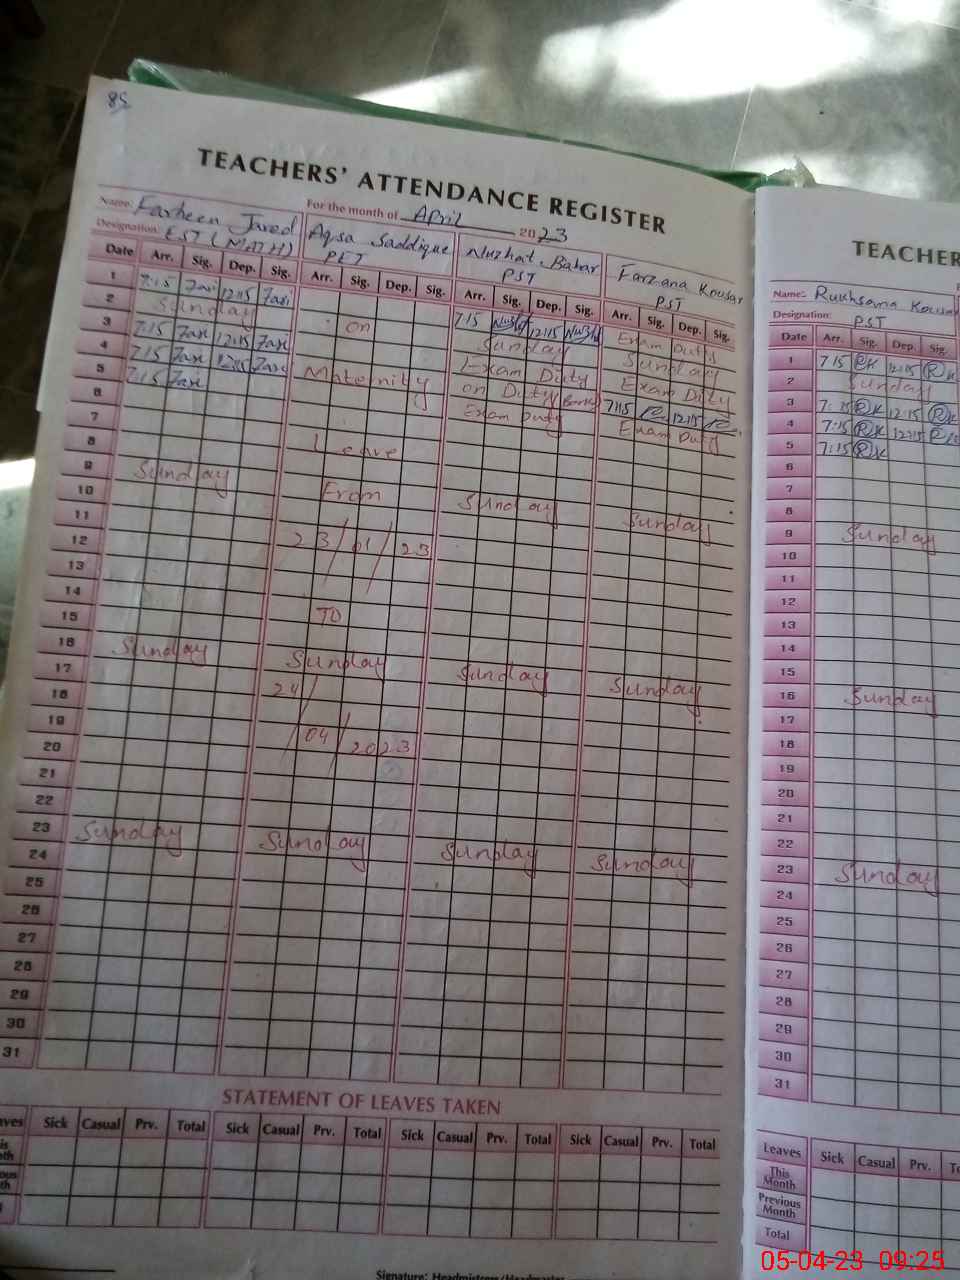 85
TEACHERS' ATTENDANCE REGISTER
For the month of April 2023
Name: Farheen Javed
Designation: EST (MATH)
Aqsa Saddique
PET
Nuzhat Bahar
PST
Farzana Kousar
PST
Date Arr. Sig. Dep. Sig. Arr. Sig. Dep. Sig. Arr. Sig. Dep. Sig. Arr. Sig. Dep. Sig.
1 7:15 12:15 7:15 12:15 Exam Duty
2 Sunday Sunday Sunday
3 7:15 12:15 on Exam Duty Exam Duty
4 7:15 12:15 on Duty 7:15 12:15
5 7:15 Maternity Exam Duty Exam Duty
6
7
8 Leave
9 Sunday From Sunday Sunday
10
11 23/01/23
12
13
14 TO
15
16 Sunday Sunday Sunday Sunday
17 24/
18
19 /04/2023
20
21
22
23 Sunday Sunday Sunday Sunday
24
25
26
27
28
29
30
31
STATEMENT OF LEAVES TAKEN
Sick Casual Prv. Total Sick Casual Prv. Total Sick Casual Prv. Total Sick Casual Prv. Total
Signature: Headmistress/Headmaster
TEACHER
Name: Rukhsana Kousar
Designation: PST
Date Arr. Sig. Dep. Sig.
1 7:15 RK 12:15 RK
2 Sunday
3 7:15 RK 12:15 RK
4 7:15 RK 12:15 RK
5 7:15 RK
6
7
8
9 Sunday
10
11
12
13
14
15
16 Sunday
17
18
19
20
21
22
23 Sunday
24
25
26
27
28
29
30
31
Leaves Sick Casual Prv.
This Month
Previous Month
Total
05-04-23 09:25